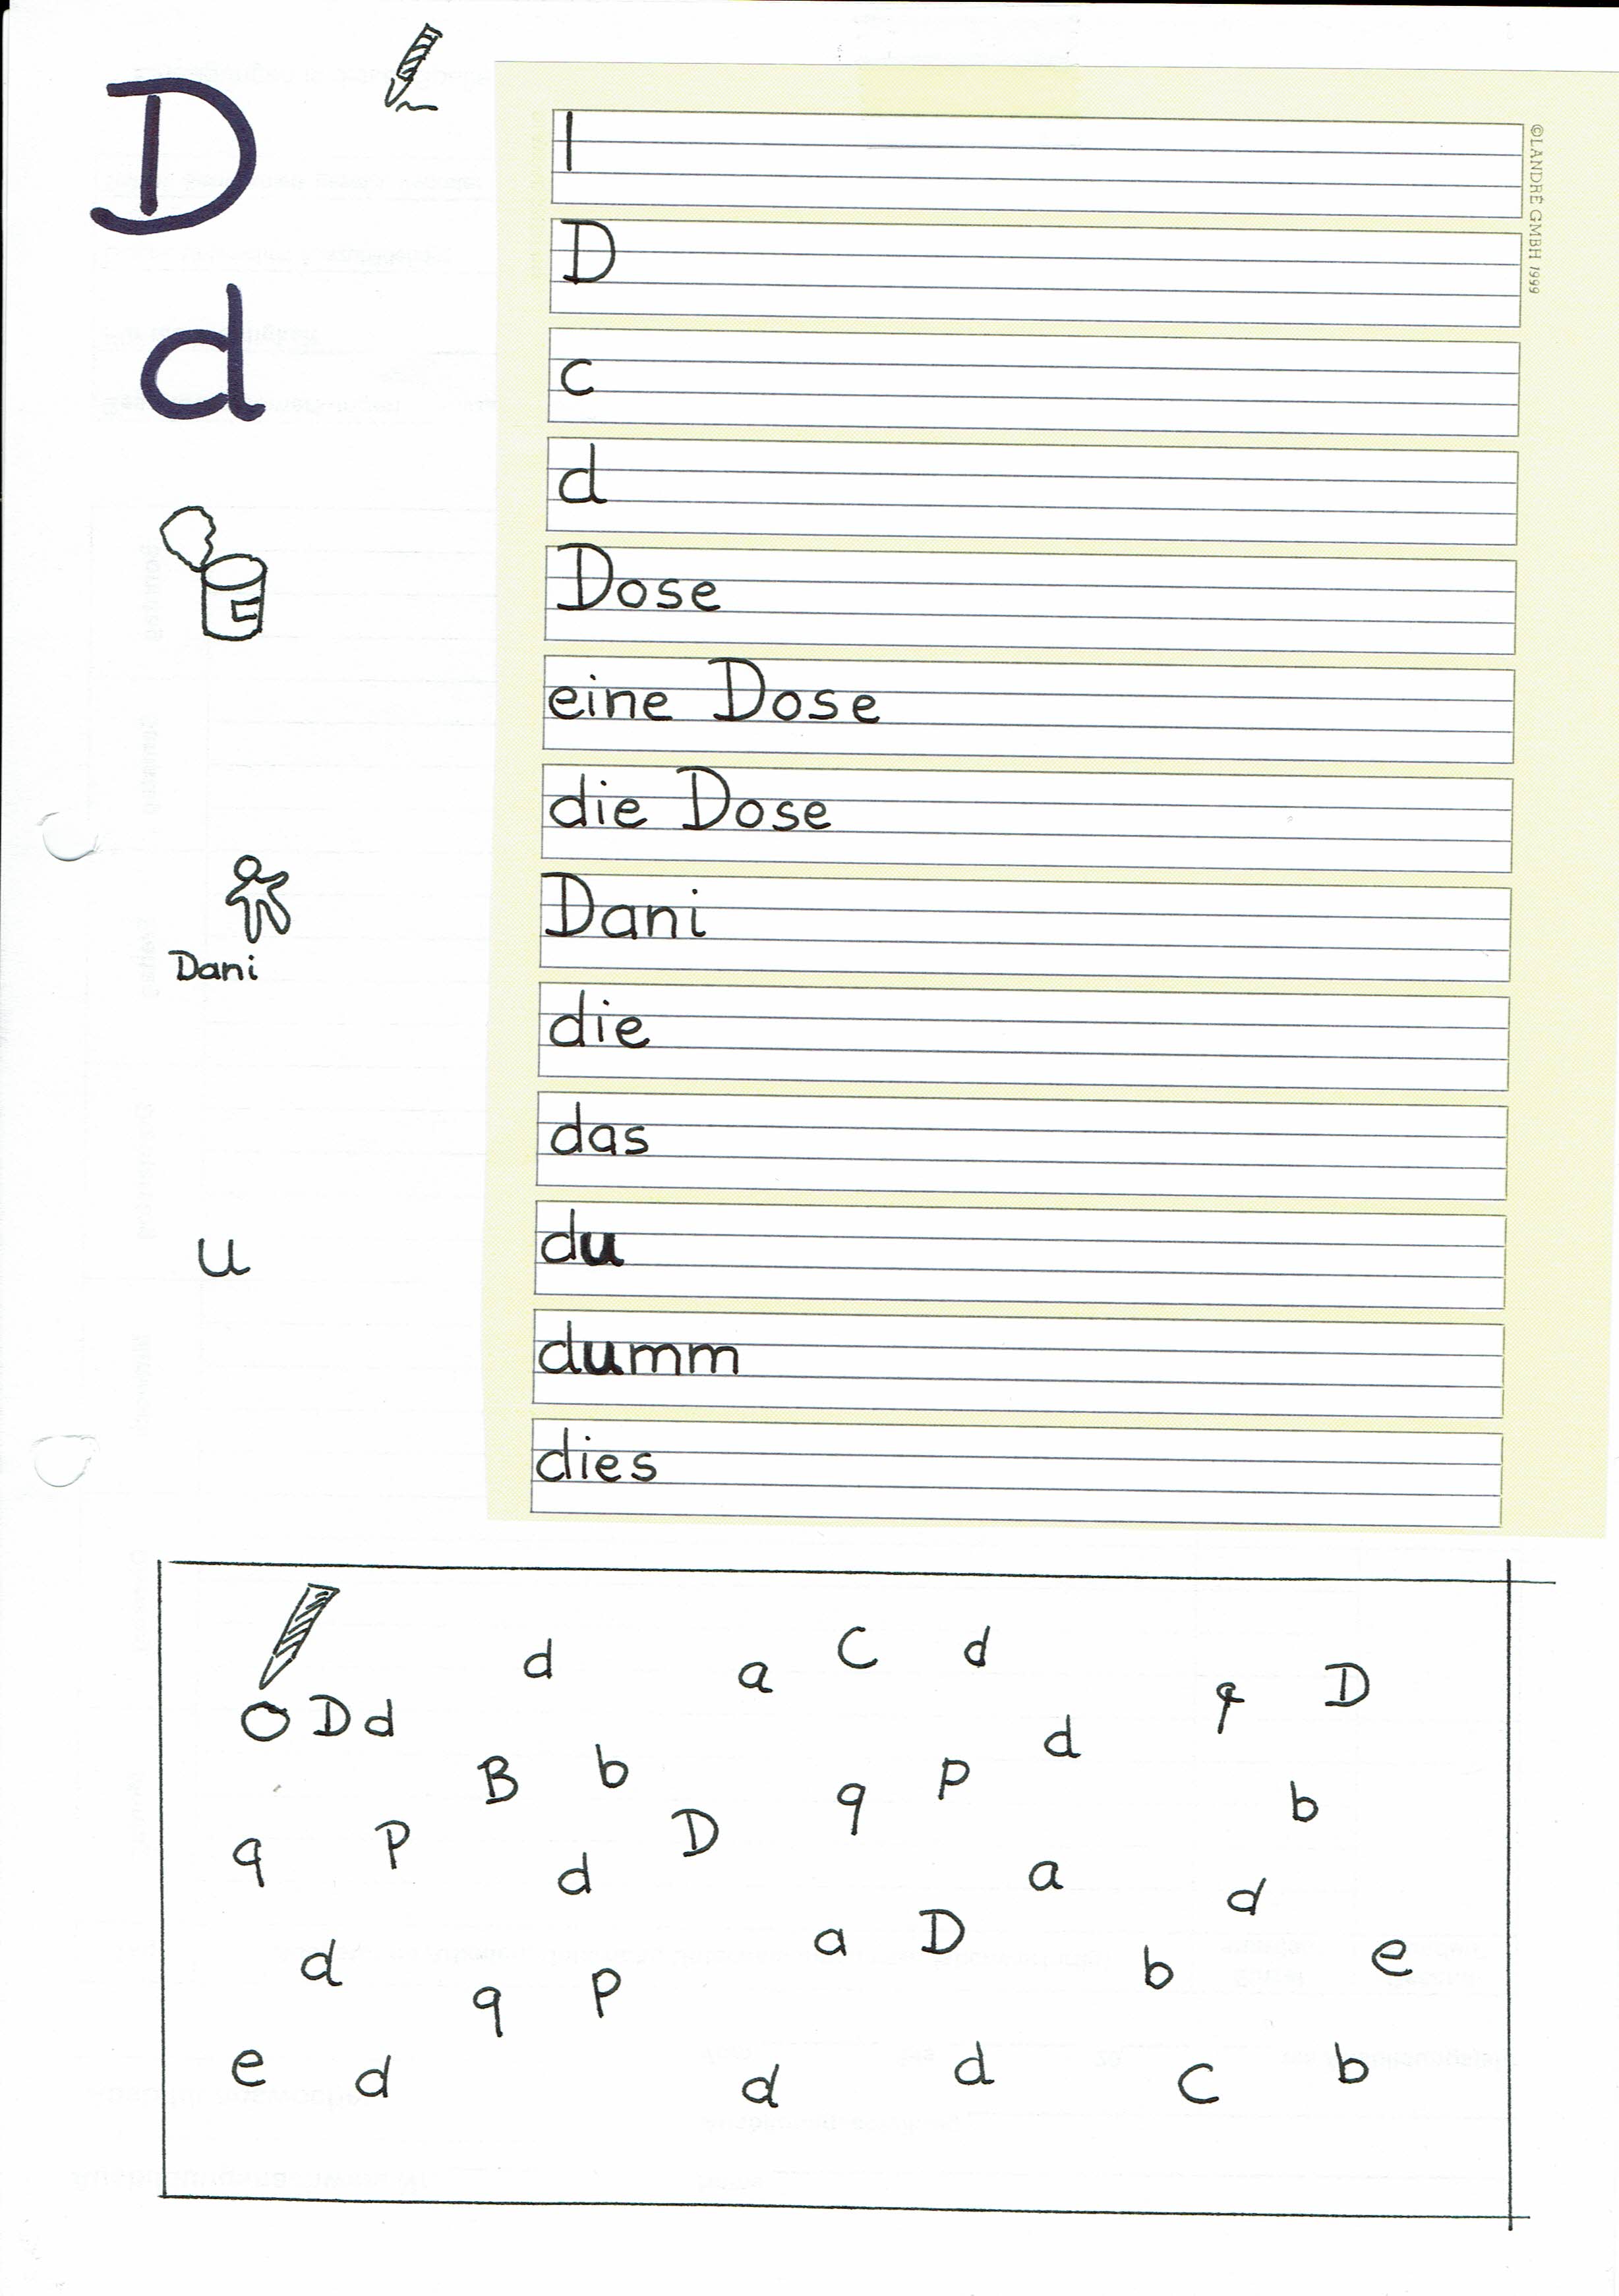 D
d
l
D
c
d
Dose
eine Dose
die Dose
Dani
Dani
die
das
u
du
dumm
dies
©LANDRÉ GMBH 1999
d a C d q D
O D d d
B b q p b
q P d D a d
d q p a D b e
e d d d c b